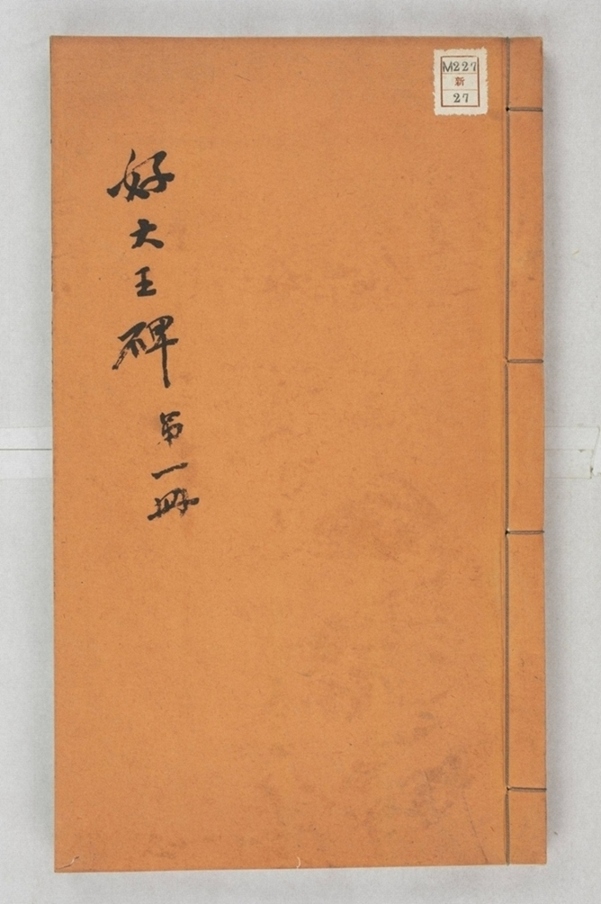 好大王碑 第一冊
M227
新
27